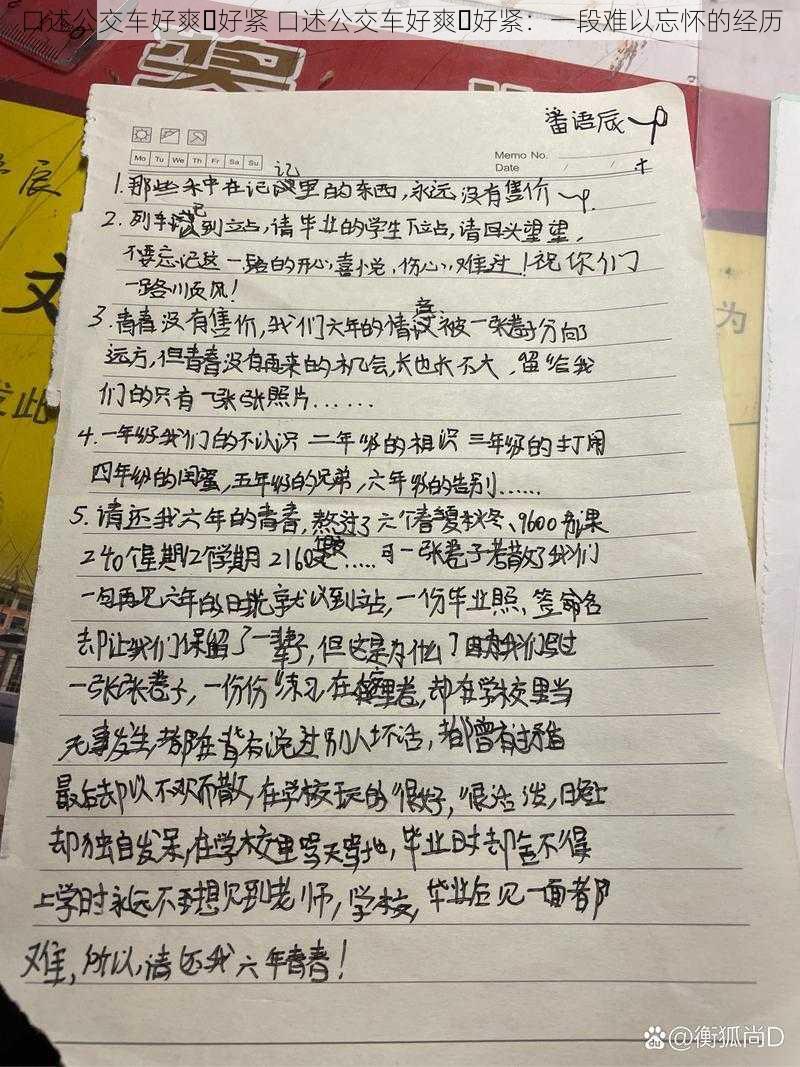 口述公交车好爽好紧 口述公交车好爽好紧：一段难以忘怀的经历
番语辰
Mo Tu We Th Fr Sa Su
Memo No.
Date / /
1.那些未中在记这里的东西,永远没有售价
记
2.列车已到立占,请毕业的学生下立占,请回头望望,
不要忘记这一路的开心,喜悦,伤心,难过!祝你们
一路川页风!
3.青春没有售价,我们六年的情议被一张卷子分向
远方,但青春没有再来的机会,长也长不大,留给我
们的只有一张张照片......
4.一年级我们的不认识 二年级的相识 三年级的打闹
四年级的闺蜜,五年级的兄弟,六年级的告别......
5.请还我六年的青春,熬过了六个春夏秋冬、9600节课
240个星期12个学期2160天.....可一张卷子若散了我们
一句再见六年的时光就以到立占,一份毕业照,签命名
却让我们保留了一辈子,但这是为什么?因为我们写过
一张张卷子,一份份练习,在里卷,却在学校里当
无事发生,都在背后说过别人坏话,都曾有过矛盾
最后却以不欢而散,在学校玩的很好,很活泼,日晚上
却独自发呆,在学校里骂天骂地,毕业时却舍不得
上学时永远不想见到老师,学校,毕业后见一面都
难,所以,请还我六年青春!
文
发此
为
Bai du @衡狐尚D